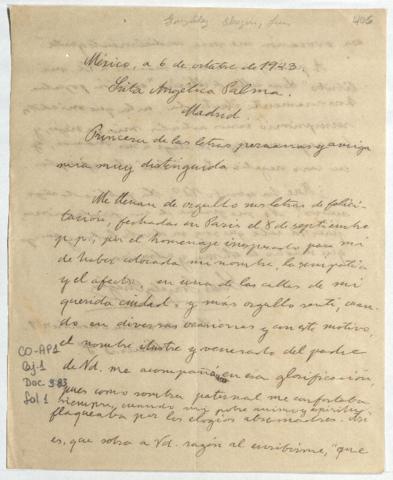 González Obregón, Luis
406
México, a 6 de octubre de 1923.
Srita Angélica Palma.
Madrid.
Princesa de las letras peruanas y amiga
mía muy distinguida
Me llenan de orgullo sus letras de felici-
tación, fechadas en París el 8 de septiembre
p.p., por el homenaje inesperado para mí
de haber colocado mi nombre, la simpatía
y el afecto en una de las calles de mi
querida ciudad. y más orgullo sentí, cuan-
do en diversas ocasiones y con este motivo,
el nombre ilustre y venerado del padre
de Vd. me acompaña en esa glorificación,
pues como sombra paternal me confortaba
siempre, cuando muy pobre ánimo y espíritu
flaqueaba por los elogios
es, que sobra a Vd. razón al escribirme, "que
CO-AP1
Cj-1
Doc 983
fol 1